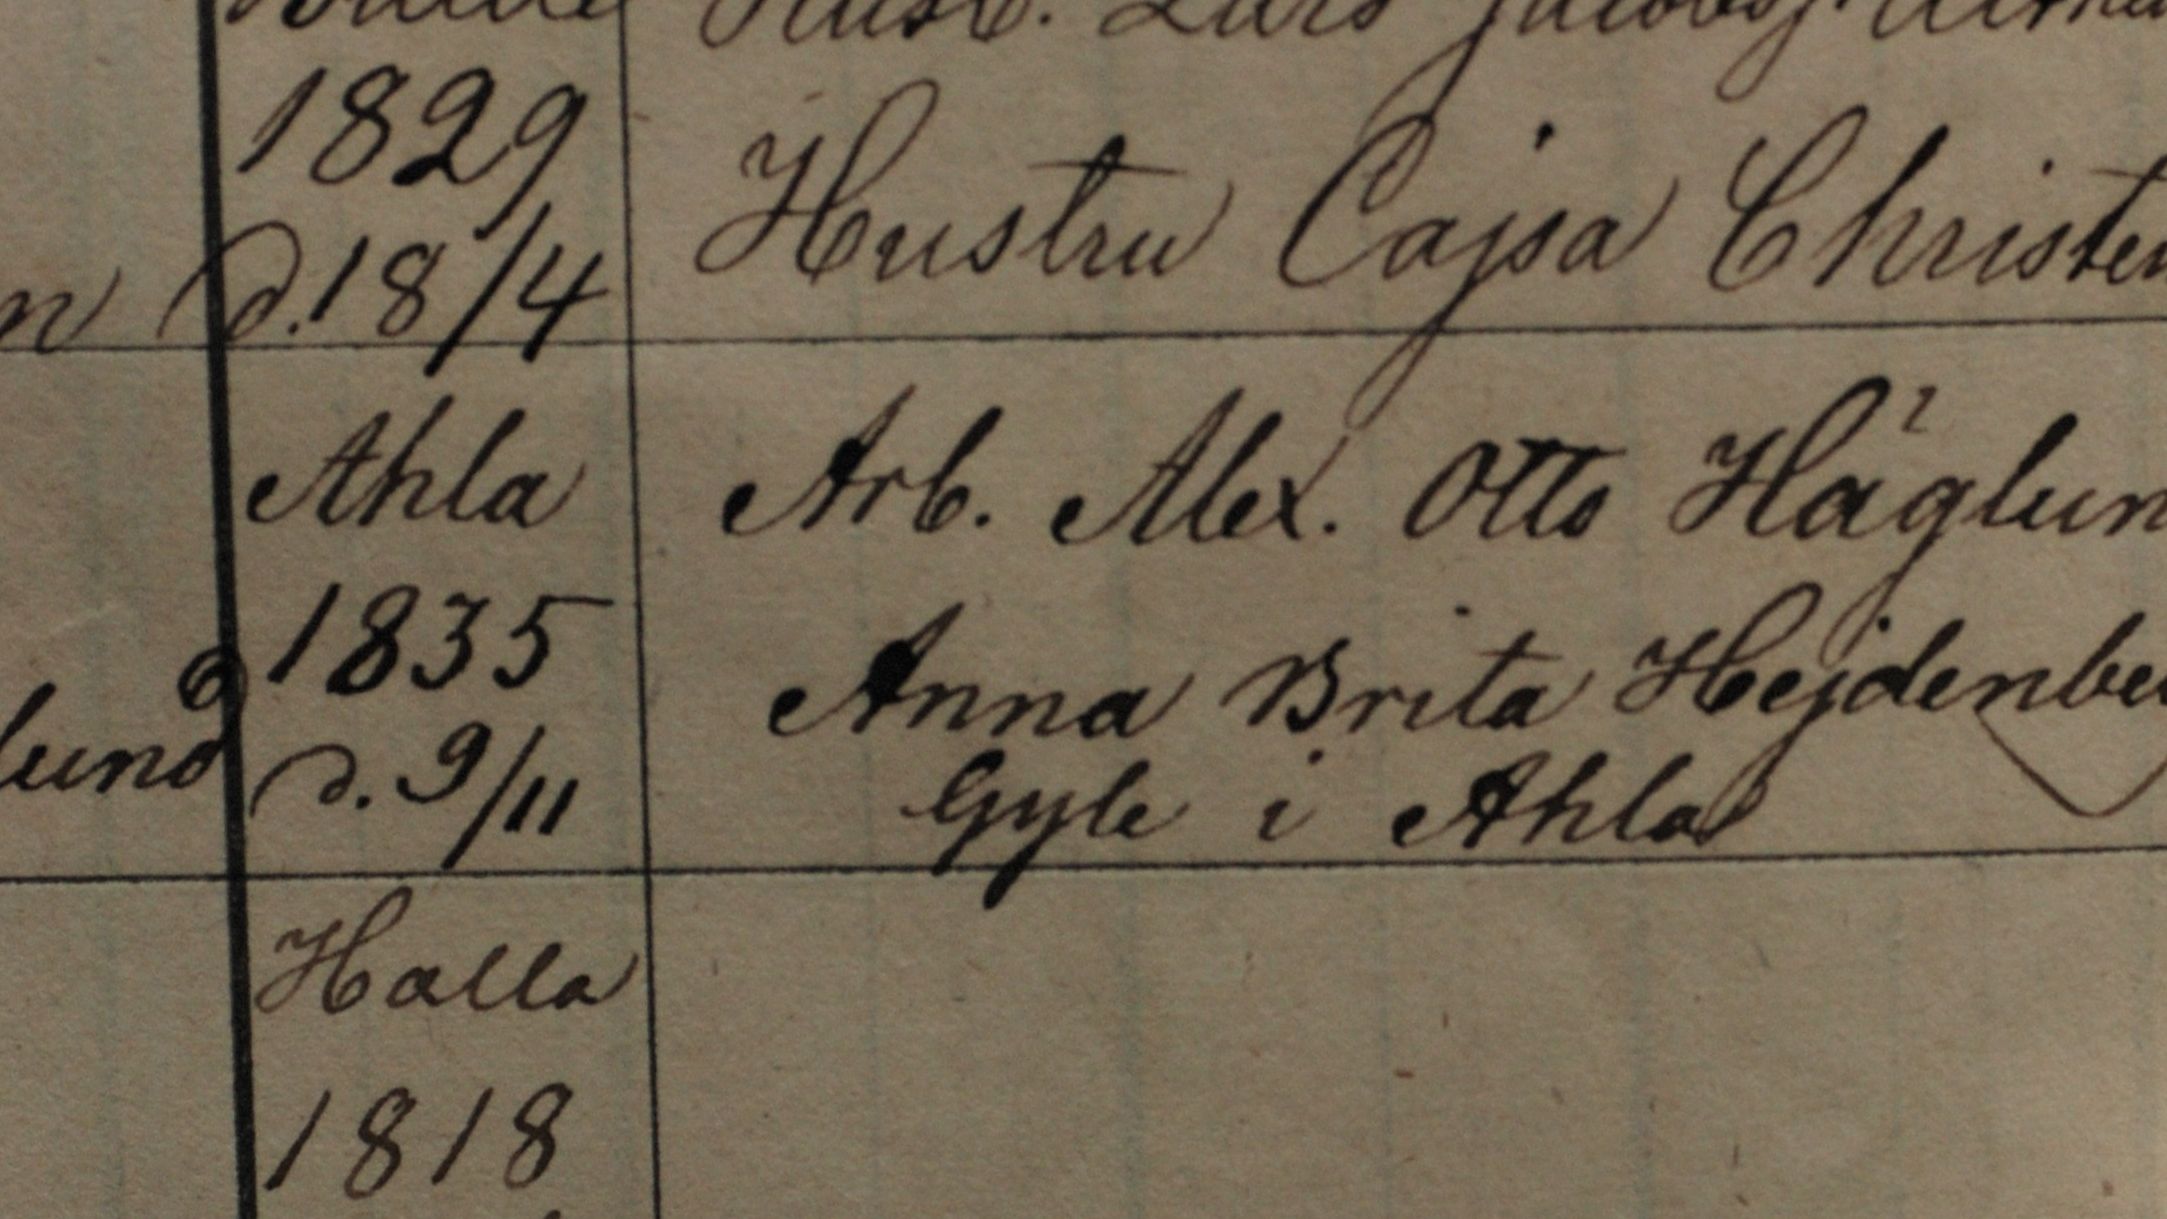 Lars
1829
Hustru Cajsa Christen
n d. 18/4
Ahla Arb. Alex. Otto Häglun
1835 Anna Brita Hejdenbe
lund d. 9/11 Gyle i Ahla
Halla
1818